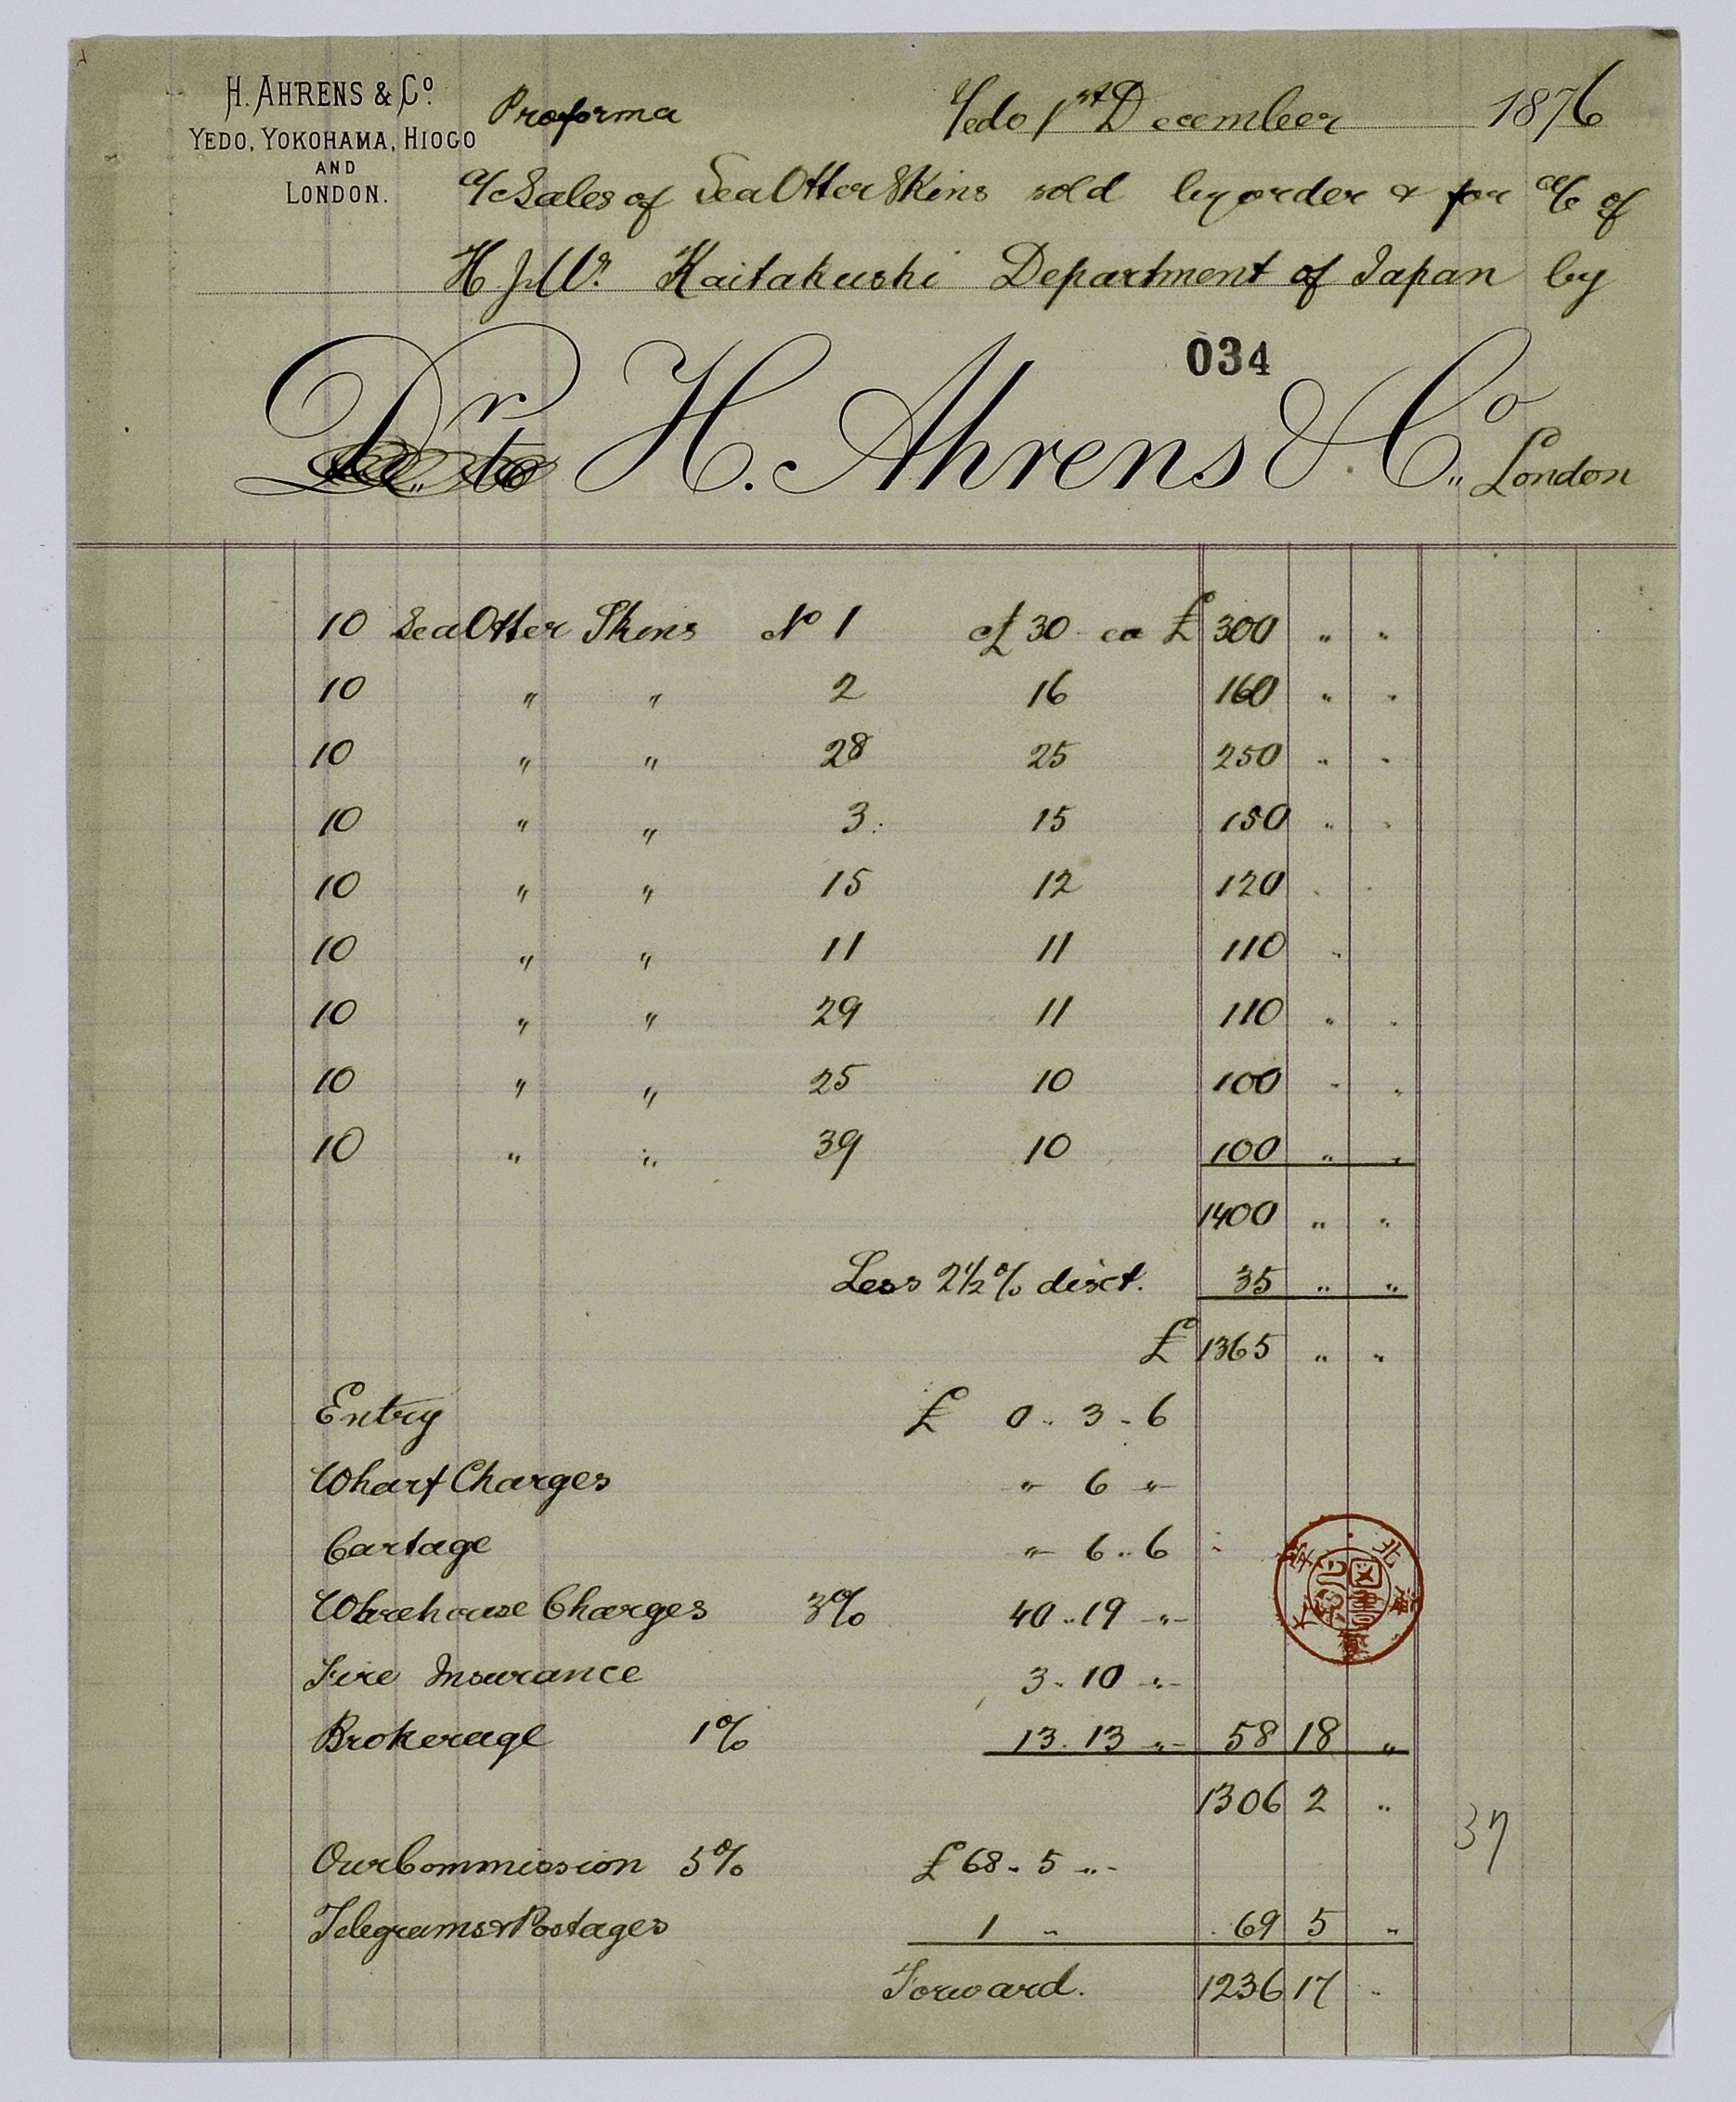 H. AHRENS & Co.
YEDO, YOKOHAMA, HIOGO
AND
LONDON.
Proforma Yedo 1st December 1876
a/c Sales of Sea Otter Skins sold by order & for a/c of
H J M's Kaitakushi Department of Japan by
034
Dr. to H. Ahrens & Co. London
10 Sea Otter Skins No 1 £ 30 ea £ 300 " "
10 " " 2 16 160 " "
10 " " 28 25 250 " "
10 " " 3 15 150 " "
10 " " 15 12 120 " "
10 " " 11 11 110 "
10 " " 29 11 110 " "
10 " " 25 10 100 " "
10 " " 39 10 100 " "
1400 " "
Less 2½% disct. 35 " "
£ 1365 " "
Entry £ 0 " 3 - 6
Wharf Charges " 6 "
Cartage " 6 " 6
Warehouse Charges 3% 40 " 19 "
Fire Insurance 3 - 10 "
Brokerage 1% 13. 13 " 58 18 "
1306 2 "
37
Our Commission 5% £ 68 - 5 "
Telegrams & Postages 1 " 69 5 "
Forward. 1236 17 "